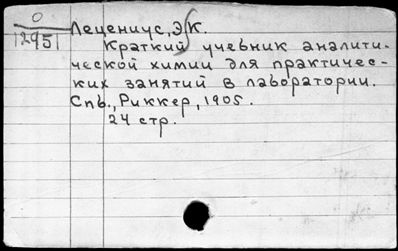 0
12951
Лецениус, Э.К.
Краткий учебник аналити-
ческой химии для практичес-
ких занятий в лаборатории.
Спб., Риккер, 1905.
24 стр.